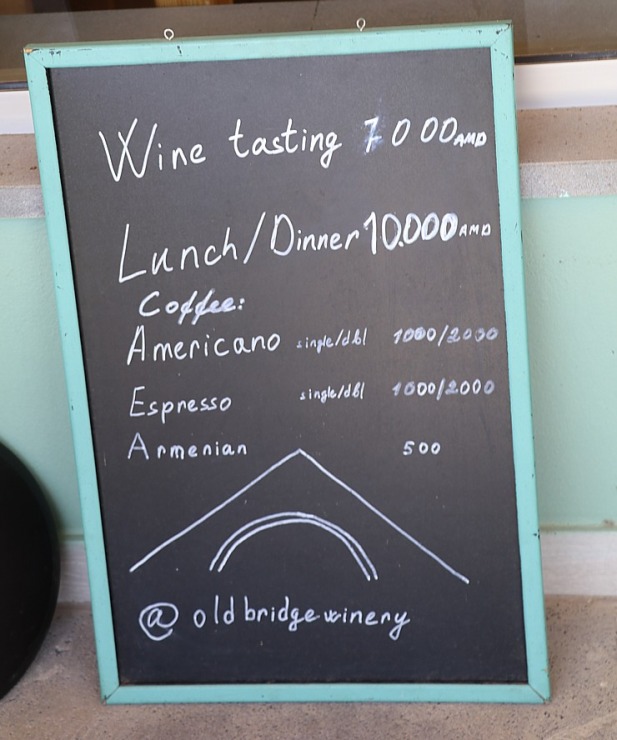 Wine tasting 7000 AMD
Lunch/Dinner 10.000 AMD
Coffee:
Americano single/dbl 1000/2000
Espresso single/dbl 1000/2000
Armenian 500
@oldbridgewinery